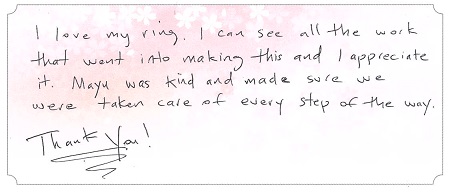 I love my ring. I can see all the work
that went into making this and I appreciate
it. Mayu was kind and made sure we
were taken care of every step of the way.
Thank You!